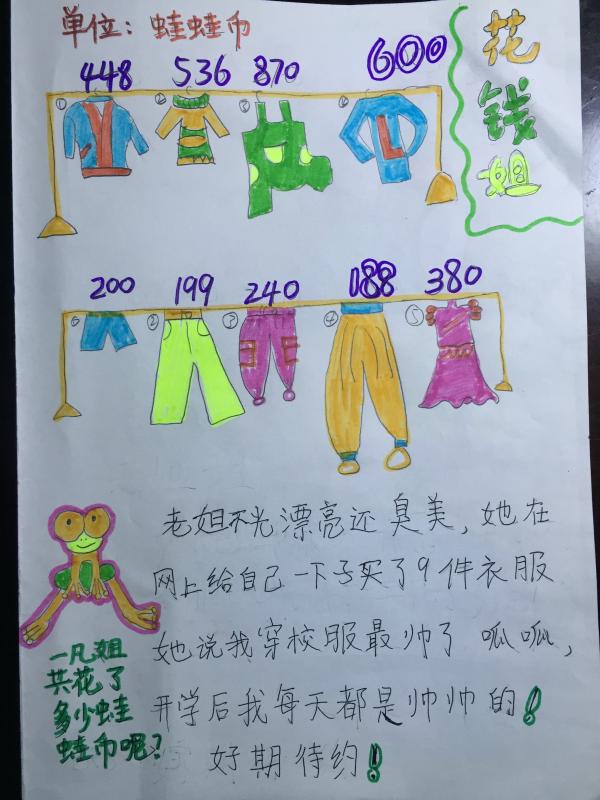 单位：蛙蛙币
花钱姐
448 536 870 600
① ② ③ ④
L
200 199 240 188 380
① ② ③ ④ ⑤
老姐不光漂亮还臭美，她在
网上给自己一下子买了9件衣服
她说我穿校服最帅了 呱呱，
开学后我每天都是帅帅的！
好期待约！
一凡姐
共花了
多少蛙
蛙币呢？